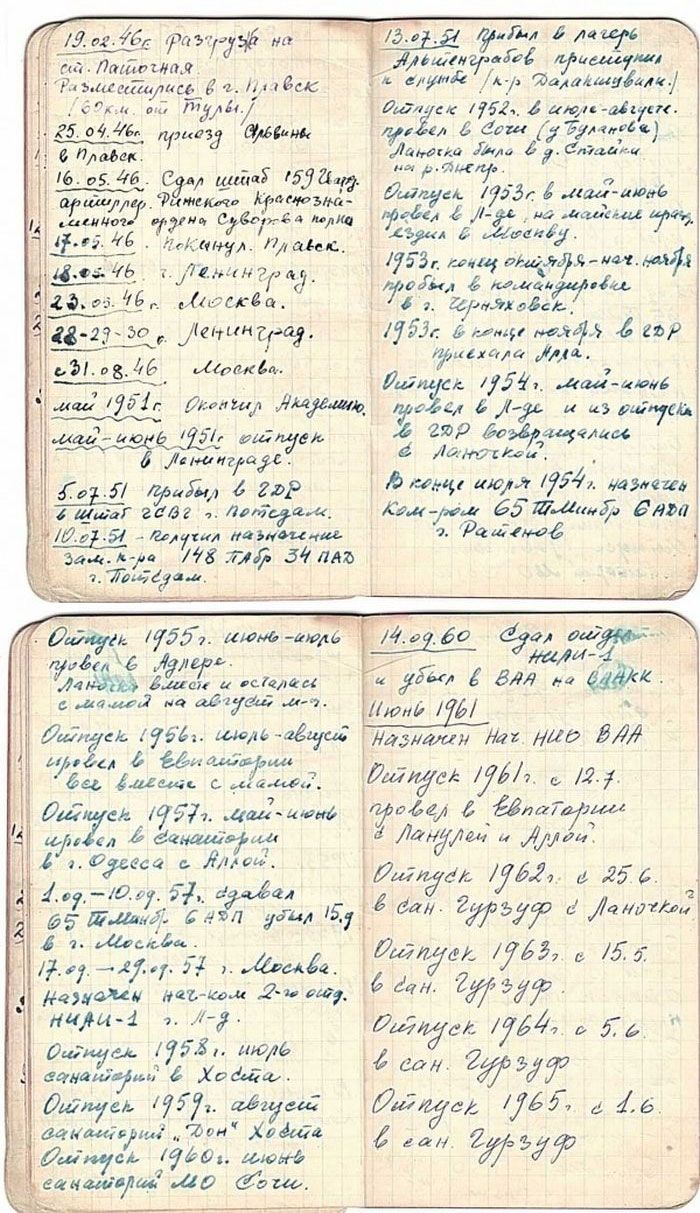 19.02.46г. Разгрузка на
ст. Паточная.
Разместились в г. Плавск
/60 км. от Тулы./
25.04.46г. приезд Альвины
в Плавск.
16.05.46. Сдал штаб 159 Гвард.
артиллер. Рижского Краснозна-
менного ордена Суворова полка
17.05.46 Покинул Плавск.
18.05.46 г. Ленинград.
23.05.46г. Москва.
28-29-30г. Ленинград.
с 31.08.46 Москва.
май 1951г. Окончил Академию.
май-июнь 1951г отпуск
в Ленинграде.
5.07.51 прибыл в ГДР
в Штаб ГСВГ г. Потсдам.
10.07.51 - получил назначение
зам. к-ра 148 ПАбр 34 ПАД
г. Потсдам.
13.07.51 прибыл в лагерь
Альтенграбов приступил
к службе /к-р Далакишвили./
Отпуск 1952г. в июле-августе.
провел в Сочи (у Буланова)
Ланочка была в д. Стайки
на р. Днепр.
Отпуск 1953г. в май-июнь
провел в Л-де, на майские празд.
ездил в Москву.
1953г. конец октября-нач. ноября
пробыл в командировке
в г. Черняховск.
1953г. в конце ноября в ГДР
приехала Алла.
Отпуск 1954г. май-июнь
провел в Л-де и из отпуска
в ГДР возвращались
с Ланочкой.
В конце июля 1954г. назначен
Ком-ром 65 ТМинбр 6 АДП
г. Ратенов
Отпуск 1955г. июнь-июль
провел в Адлере.
Ланочка вместе и осталась
с мамой на август м-ц.
Отпуск 1956г. июль-август
провел в Евпатории
все вместе с мамой.
Отпуск 1957г. май-июнь
провел в санатории
в г. Одесса с Аллой.
1.09.-10.09.57г. сдавал
65 ТМинбр. 6 АДП убыл 15.9
в г. Москва.
17.09.-29.09.57 г. Москва.
назначен нач-ком 2-го отд.
НИАИ-1 г. Л-д.
Отпуск 1958г. июль
санаторий в Хоста.
Отпуск 1959г. август
санаторий „Дон" Хоста
Отпуск 1960г. июнь
санаторий МО Сочи.
14.09.60 Сдал отдел
НИАИ-1
и убыл в ВАА на ВААКК.
Июнь 1961
назначен нач. НИО ВАА
Отпуск 1961г. с 12.7.
провел в Евпатории
с Ланулей и Аллой.
Отпуск 1962г. с 25.6.
в сан. Гурзуф с Ланочкой
Отпуск 1963г. с 15.5.
в сан. Гурзуф.
Отпуск 1964г. с 5.6.
в сан. Гурзуф
Отпуск 1965г. с 1.6.
в сан. Гурзуф